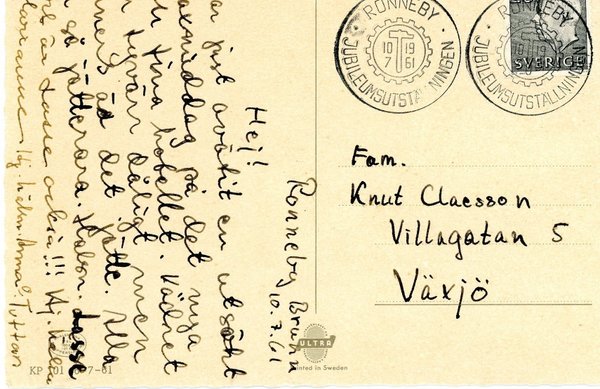 RONNEBY · JUBILEUMSUTSTÄLLNINGEN ·
10 19
7 61
RONNEBY · JUBILEUMSUTSTÄLLNINGEN ·
10 19
7 61
SVERIGE
Ronneby Brunn
10.7.61
Hej!
ar just avätit en utsökt
axmiddag på det nya
fina hotellet. Vädret
tyvärr dåligt men
är det jätte. Alla
så jätterara. Lasse
är Lasse också!!! Hj.
Hj. Tuttan
Fam.
Knut Claesson
Villagatan 5
Växjö
ULTRA
Printed in Sweden
KP 101 7-61